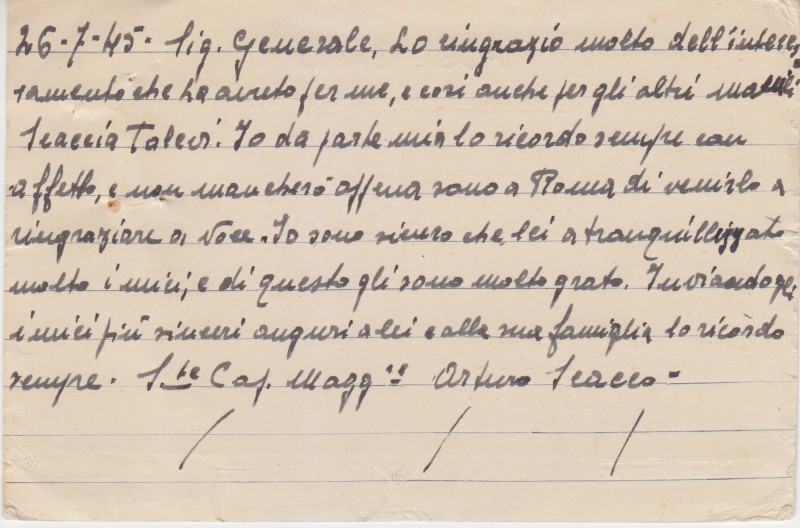 26-7-45- Sig. Generale, Lo ringrazio molto dell'interes,
samento che ha avuto per me, e così anche per gli altri
Scaccia Talevi. Io da parte mia lo ricordo sempre con
affetto, e non mancherò appena sono a Roma di venirlo a
ringraziare a Voce. Io sono sicuro che lei a tranquillizzato
molto i miei, e di questo gli sono molto grato. Inviandogli
i miei più sinceri auguri a lei e alla sua famiglia lo ricordo
sempre. Cap. Magg.re Arturo